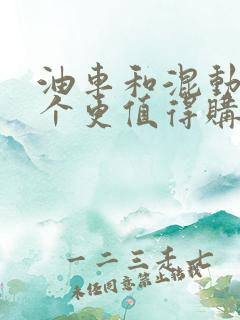 油車和混動
个更值得購
一二三禾七
未经同意禁止转载